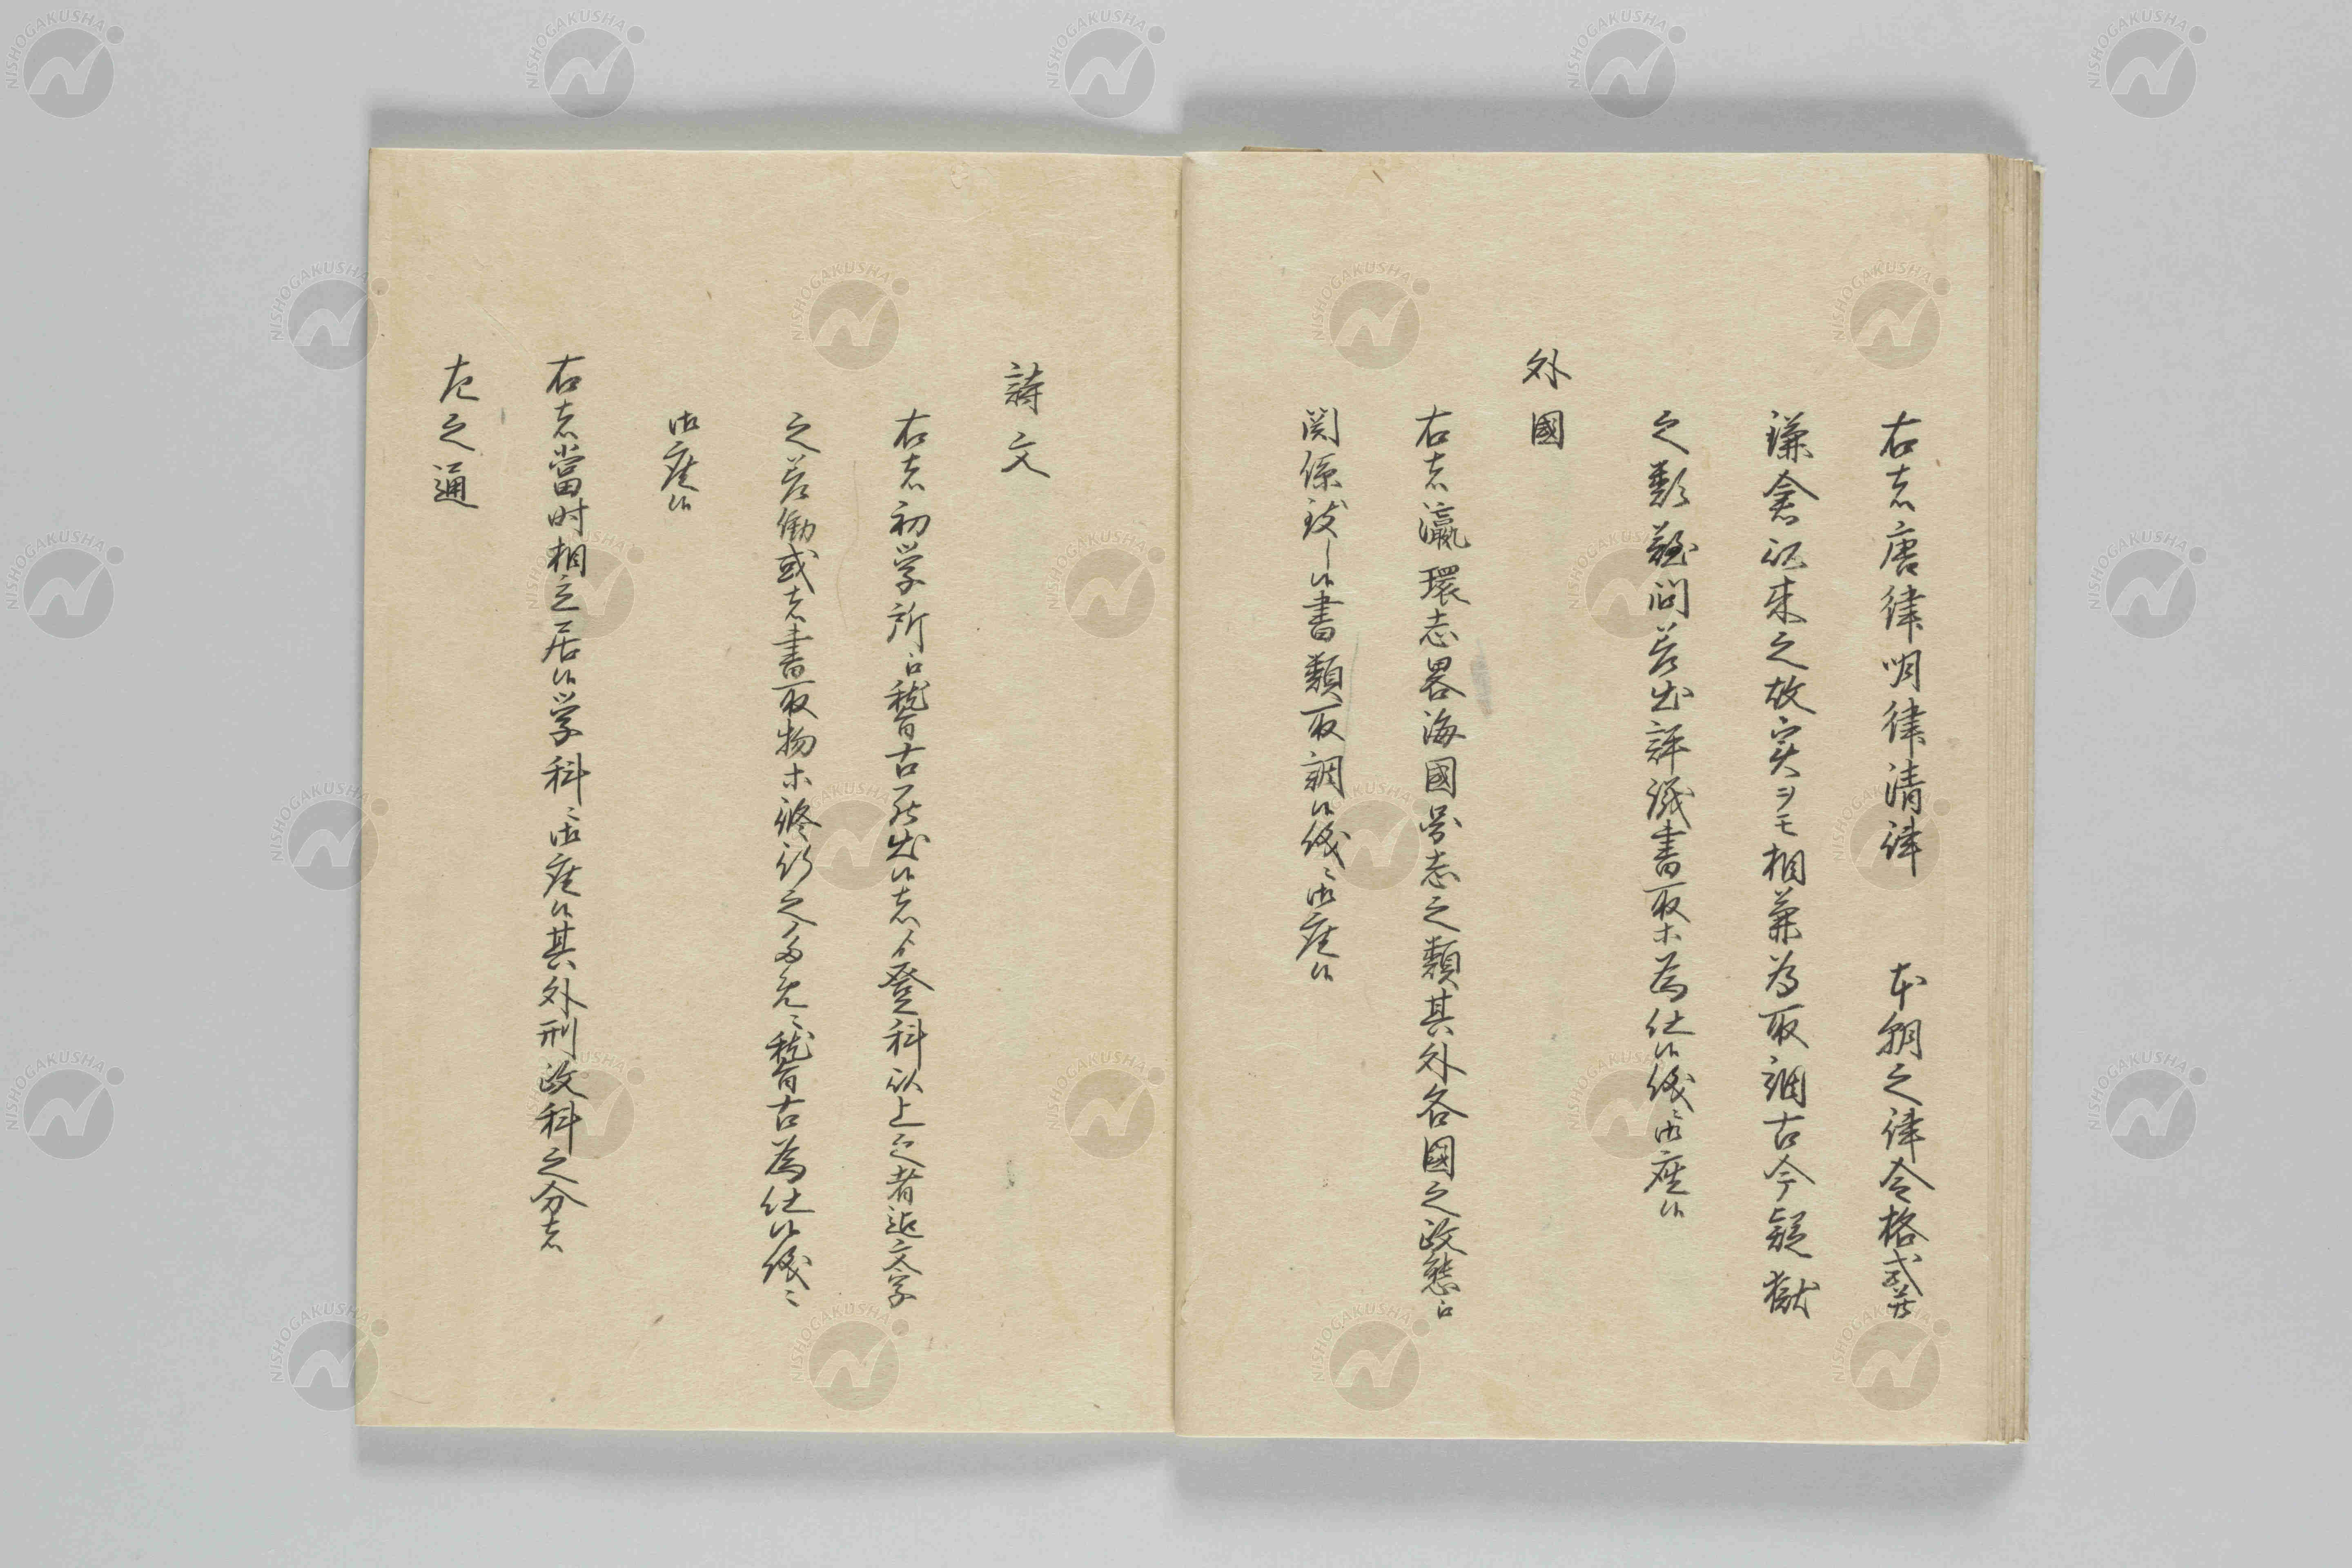 右者唐律明律清律 本朝之律令格式并
鎌倉以来之故実ヲモ相兼為取調古今疑獄
之類難問答出評議書取等為仕候儀ニ御座候
外國
右者瀛環志畧海國圖志之類其外各國之政態ニ
関係致し候書類取調候儀ニ御座候
詩文
右者初学所ニ稽古罷出候者ゟ登科以上之者迄文字
之差働或者書取物等修行之ため兼ニ稽古為仕候儀ニ
御座候
右者當时相立居候学科ニ御座候其外刑政科之分者
左之通
NISHOGAKUSHA